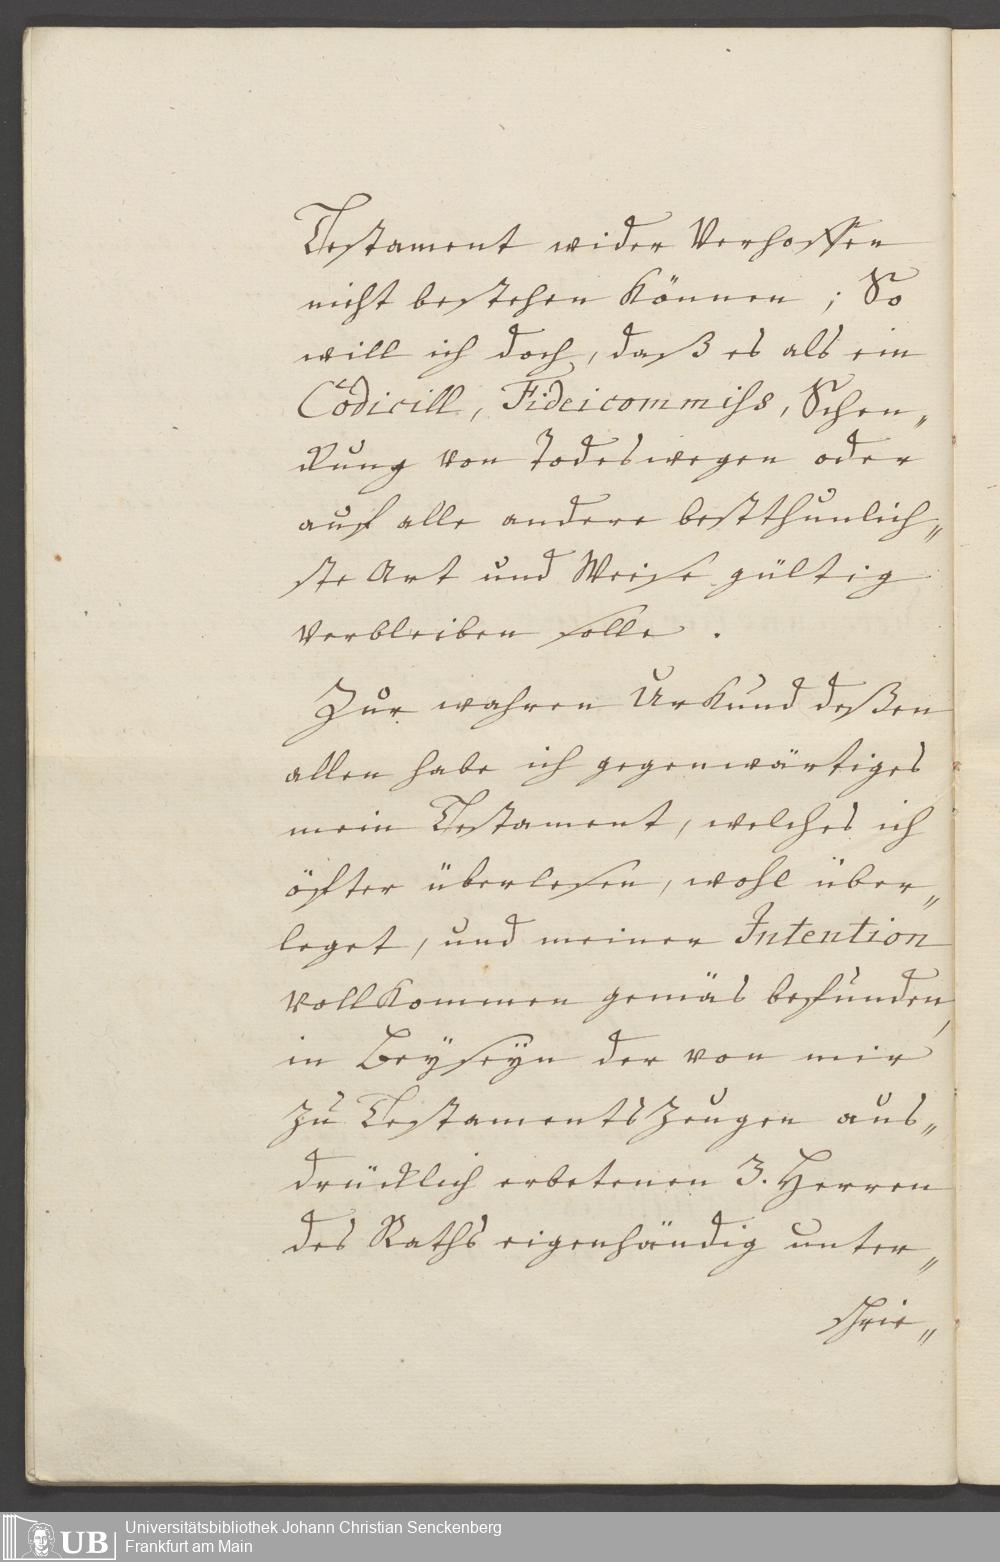 Testament wider Verhoffen
nicht bestehen können ; So
will ich doch, daß es als ein
Codicill, Fideicommiss, Schen„
ckung von Todeswegen oder
auf alle andere bestthunlich„
ste Art und Weise gültig
verbleiben solle .
Zur wahren Urkund deßen
allen habe ich gegenwärtiges
mein Testament, welches ich
öfter überlesen, wohl über„
leget, und meiner Intention
vollkommen gemäs befunden,
in Beyseÿn der von mir
zu Testaments Zeugen aus„
drücklich erbetenen 3. Herren
des Raths eigenhändig unter„
schrie„
UB
Universitätsbibliothek Johann Christian Senckenberg
Frankfurt am Main